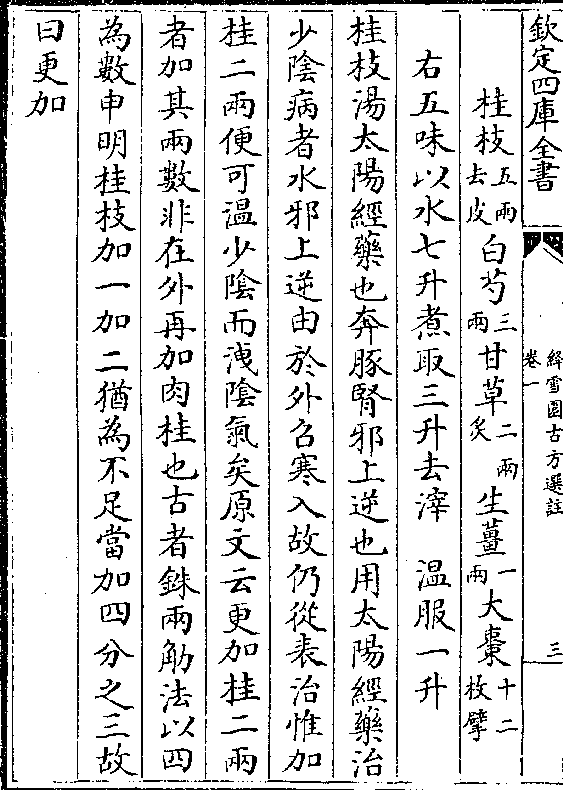 欽定四庫全書
絳雪園古方選註
卷一
三
桂枝五兩去皮 白芍三兩 甘草二兩炙 生薑一兩 大棗十二枚擘
右五味以水七升煮取三升去滓 温服一升
桂枝湯太陽經藥也奔豚腎邪上逆也用太陽經藥治
少陰病者水邪上逆由於外召寒入故仍從表治惟加
桂二兩便可温少陰而洩陰氣矣原文云更加桂二兩
者加其兩數非在外再加肉桂也古者銖兩觔法以四
為數申明桂枝加一加二猶為不足當加四分之三故
曰更加